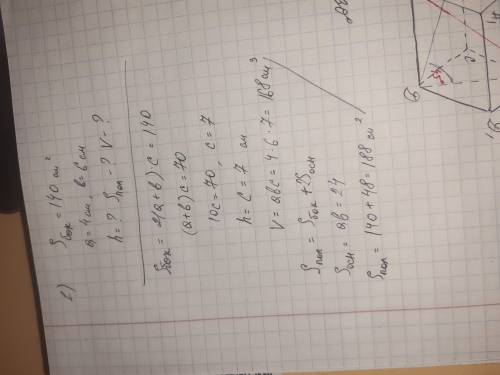 2) Sбок = 140 см²
a = 4 см, b = 6 см
h = ? Sпол - ? V - ?
Sбок = 2(a+b)c = 140
(a+b)c = 70
10c = 70, c = 7
h = c = 7 см
V = abc = 4·6·7 = 168 см³
Sпол = Sбок + 2Sосн
Sосн = ab = 24
Sпол = 140 + 48 = 188 см²